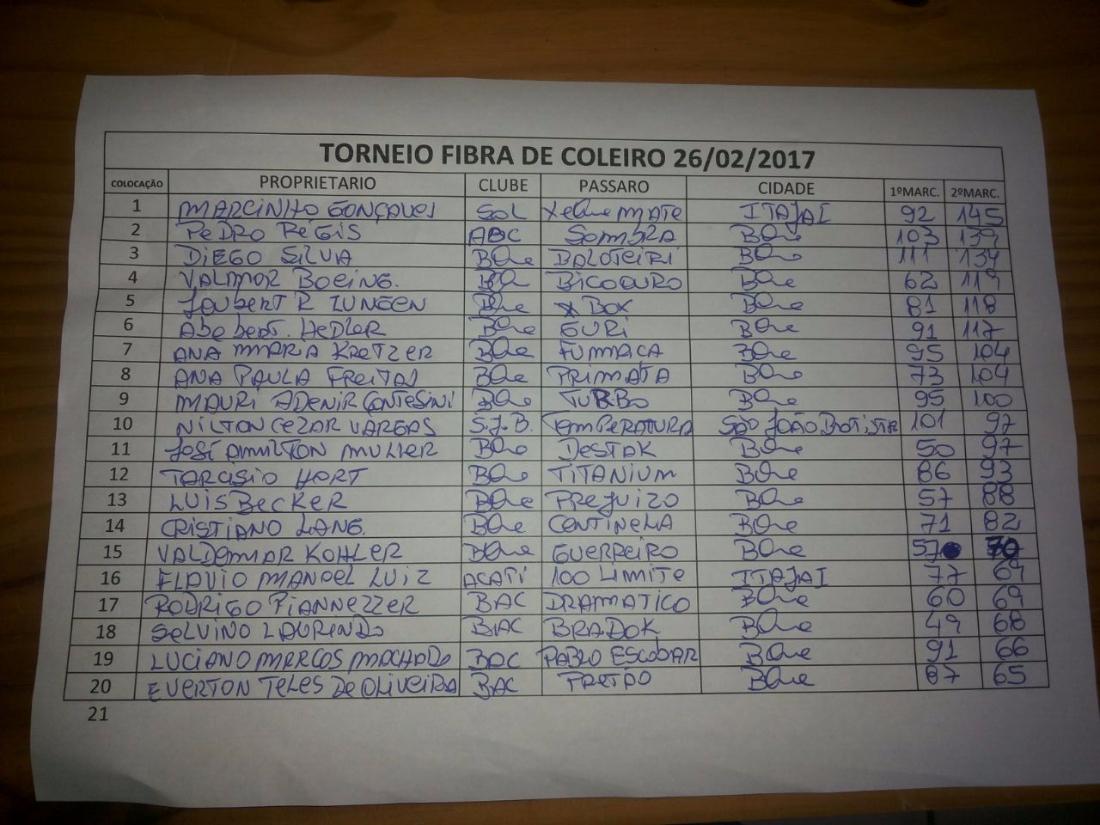 TORNEIO FIBRA DE COLEIRO 26/02/2017
COLOCAÇÃO PROPRIETARIO CLUBE PASSARO CIDADE 1ºMARC. 2ºMARC.
1 MARCINHO GONÇALVES SOL Xeque MATE ITAJAI 92 145
2 PEDRO RÉGIS ABC SOMBRA BQue 103 139
3 DIEGO SILVA BQue BALOTEIRI BQue 111 134
4 VALMOR BOEING. BQue BICOOURO BQue 62 119
5 JOUBERT R ZUNGEN BQue X BOX BQue 81 118
6 HEDLER BQue GURI BQue 91 117
7 ANA MARIA KRETZER BQue FUMACA BQue 95 104
8 ANA PAULA FREITAS BQue PRIMATA BQue 73 104
9 MAURI ADENIR CONTESINI BQue TURBO BQue 95 100
10 NILTON CEZAR VARGAS S.J.B. TEMPERATURA São JOÃO BATISTA 101 97
11 JOSÉ AMILTON MULLER BQue DESTAK BQue 50 97
12 TARCISIO HORT BQue TITANIUM BQue 86 93
13 LUIS BECKER BQue PREJUIZO BQue 57 88
14 CRISTIANO LANG. BQue CENTINELA BQue 71 82
15 VALDEMAR KOHLER BQue GUERREIRO BQue 57 70
16 FLAVIO MANOEL LUIZ ACATI 100 LIMITE ITAJAI 77 69
17 RODRIGO PIANNEZZER BAC DRAMATICO BQue 60 69
18 SELVINO LAURINDO BAC BRADOK BQue 49 68
19 LUCIANO MARCOS MACHADO BAC PABLO ESCOBAR BQue 91 66
20 EVERTON TELES DE OLIVEIRA BAC PRETÃO BQue 87 65
21